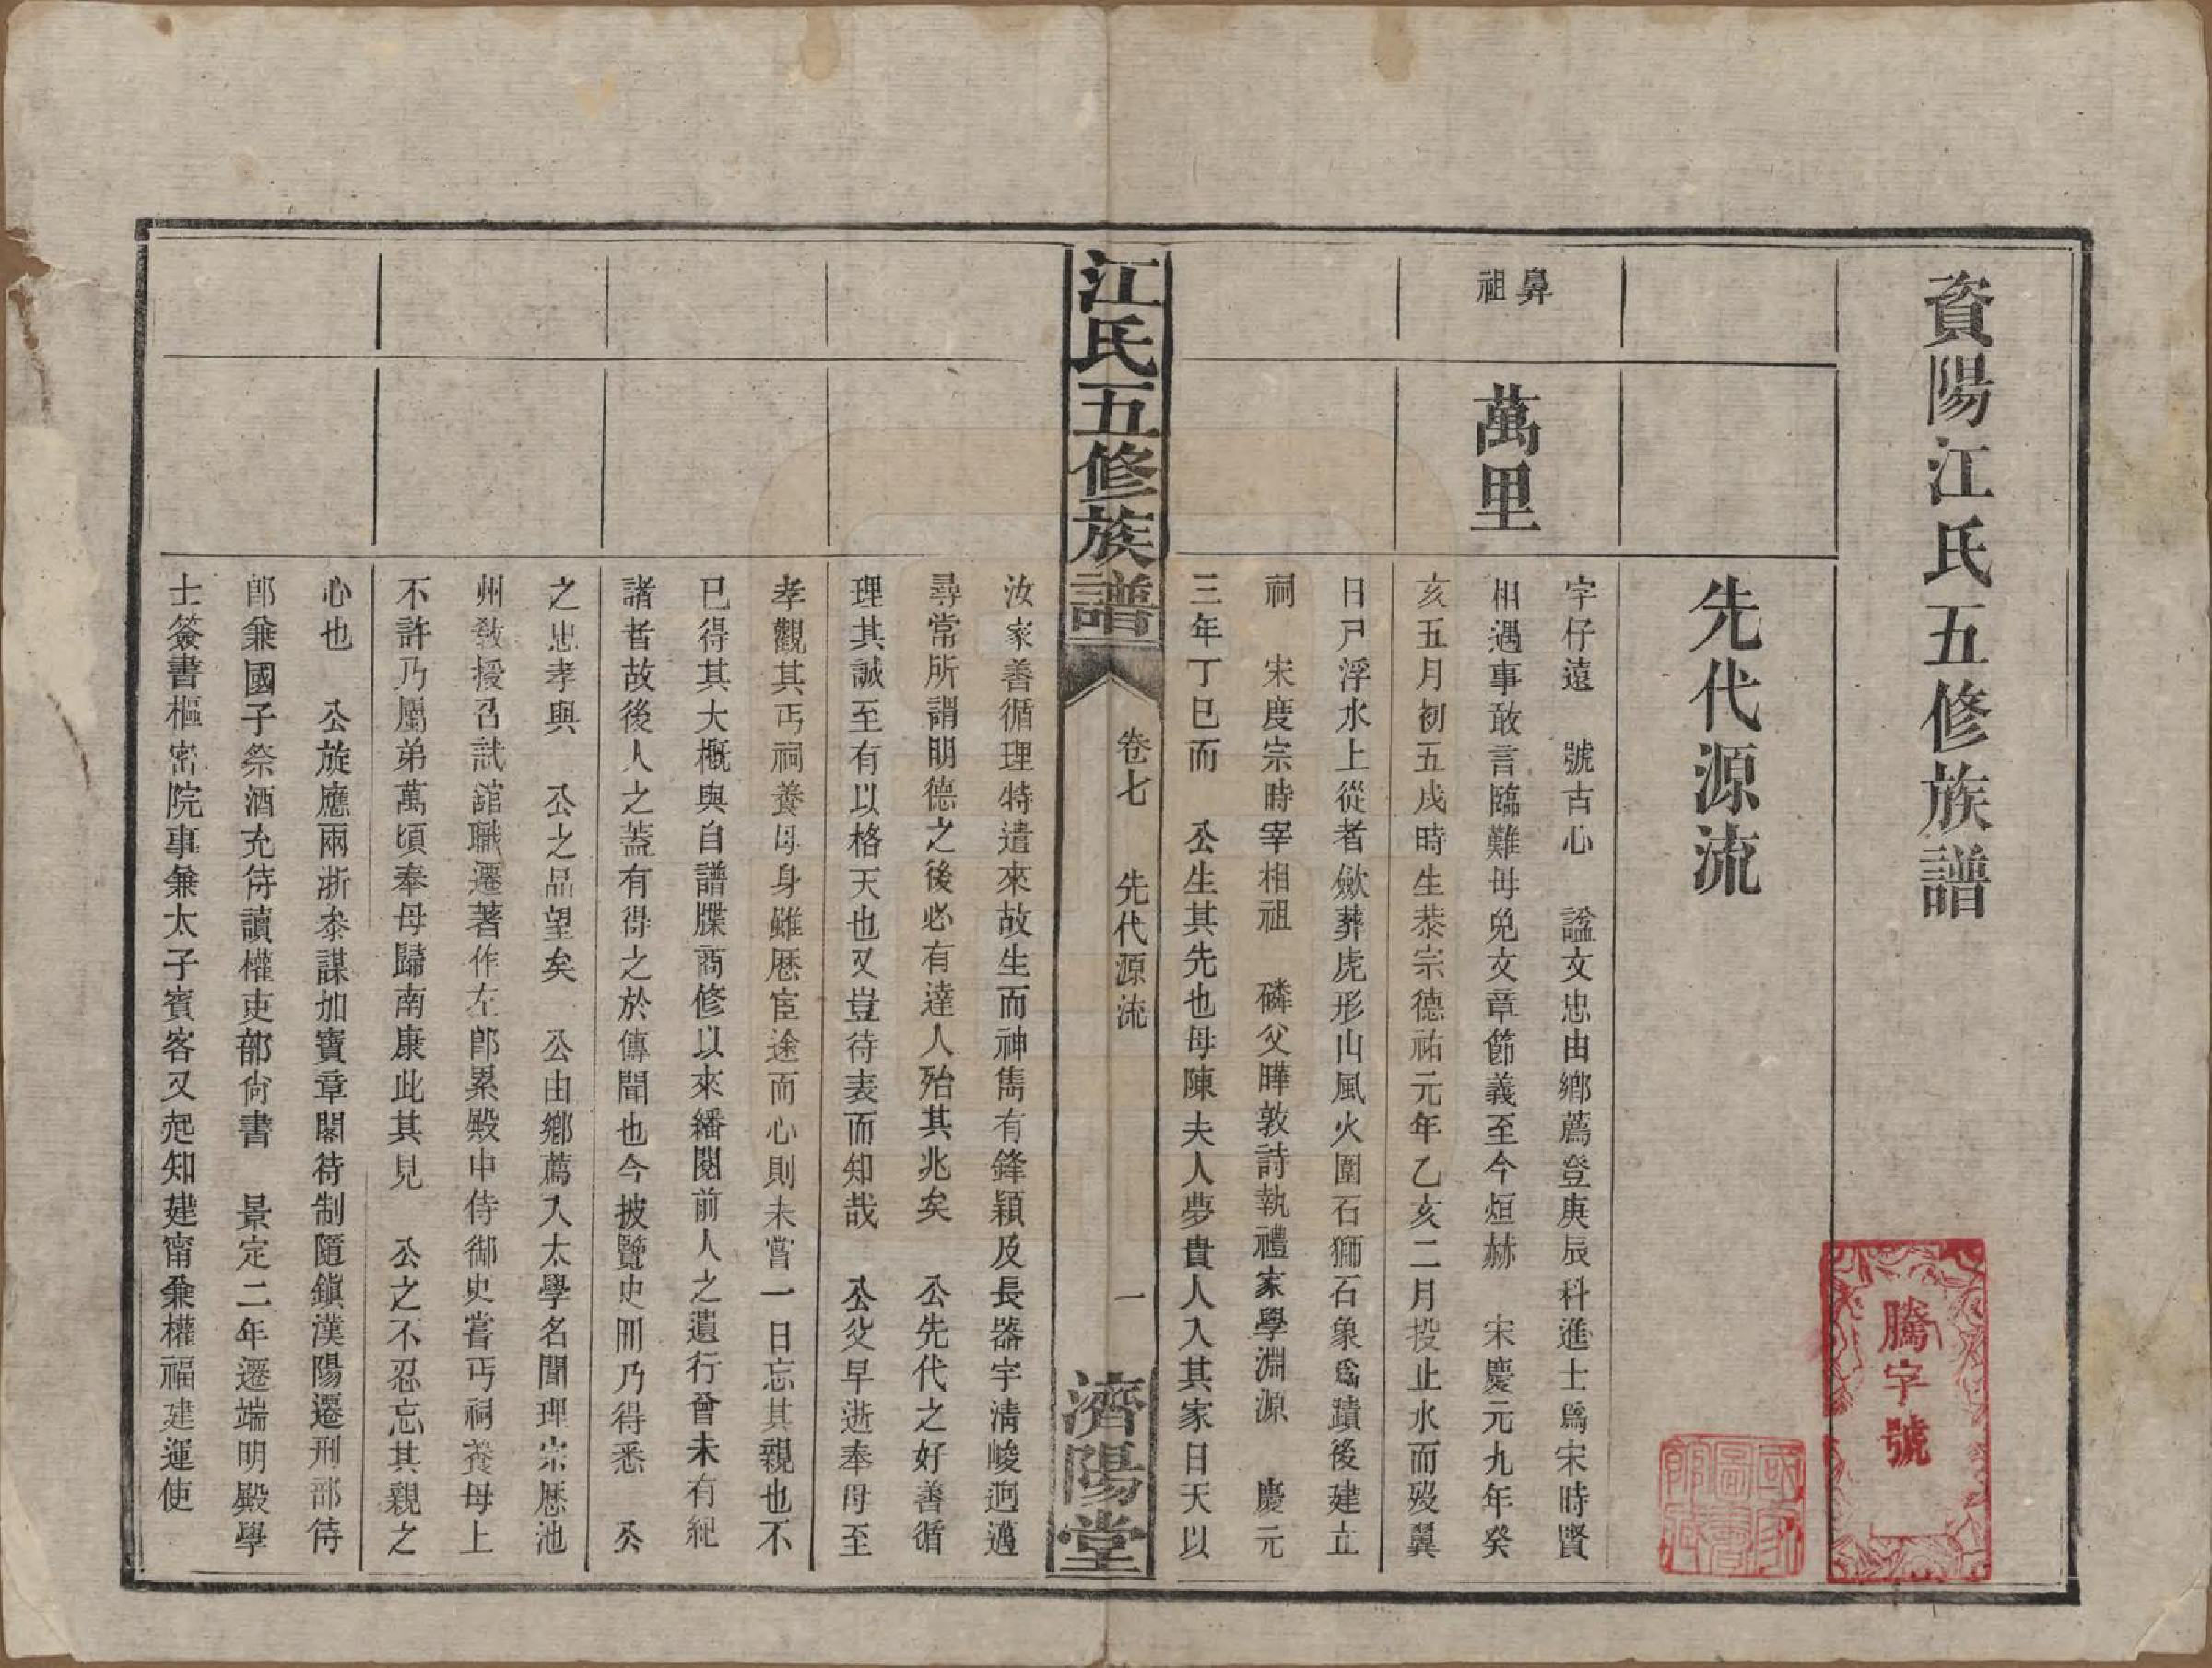 資陽江氏五修族譜
先代源流
鼻祖
萬里
字仔遠 號古心 諡文忠由鄉薦登庚辰科進士爲宋時賢
相遇事敢言臨難毋免文章節義至今烜赫 宋慶元九年癸
亥五月初五戌時生恭宗德祐元年乙亥二月投止水而歿翼
日尸浮水上從者斂葬虎形山風火圍石獅石象爲蹟後建立
祠 宋度宗時宰相祖 璘父曄敦詩執禮家學淵源 慶元
三年丁巳而 公生其先也母陳夫人夢貴人入其家曰天以
江氏五修族譜
卷七 先代源流 一
濟陽堂
汝家善循理特遣來故生而神雋有鋒穎及長器宇清峻迥邁
尋常所謂明德之後必有達人殆其兆矣 公先代之好善循
理其誠至有以格天也又豈待表而知哉 公父早逝奉母至
孝觀其丐祠養母身雖歷宦途而心則未嘗一日忘其親也不
已得其大概與自譜牒商修以來繙閱前人之遺行曾未有紀
諸者故後人之蓋有得之於傳聞也今披覽史冊乃得悉 公
之忠孝與 公之品望矣 公由鄉薦入太學名聞理宗歷池
州敎授召試舘職遷著作左郎累殿中侍御史嘗丐祠養母上
不許乃屬弟萬頃奉母歸南康此其見 公之不忍忘其親之
心也 公旋應兩浙叅謀加寶章閣待制隨鎭漢陽遷刑部侍
郎兼國子祭酒充侍讀權吏部尙書 景定二年遷端明殿學
士簽書樞密院事兼太子賓客又起知建甯兼權福建運使
騰字號
國家圖書館藏